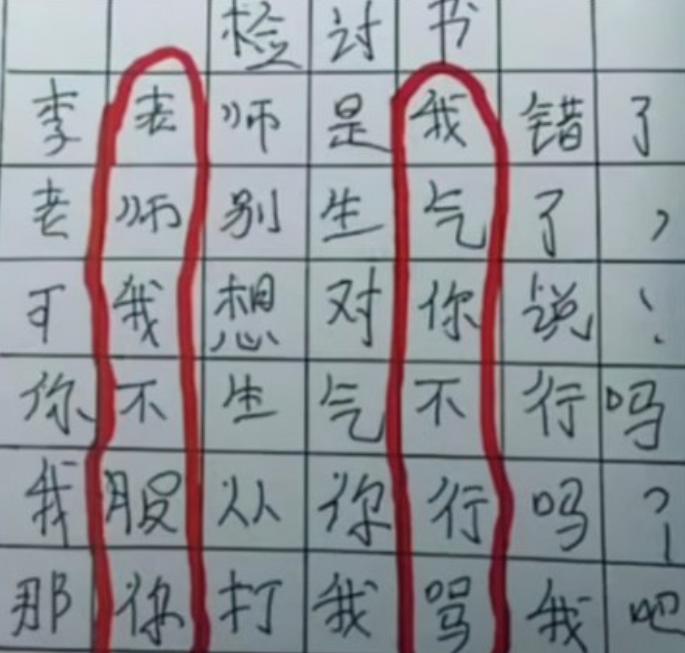 检讨书
李老师是我错了
老师别生气了，
可我想对你说：
你不生气不行吗
我服从你行吗？
那你打我骂我吧